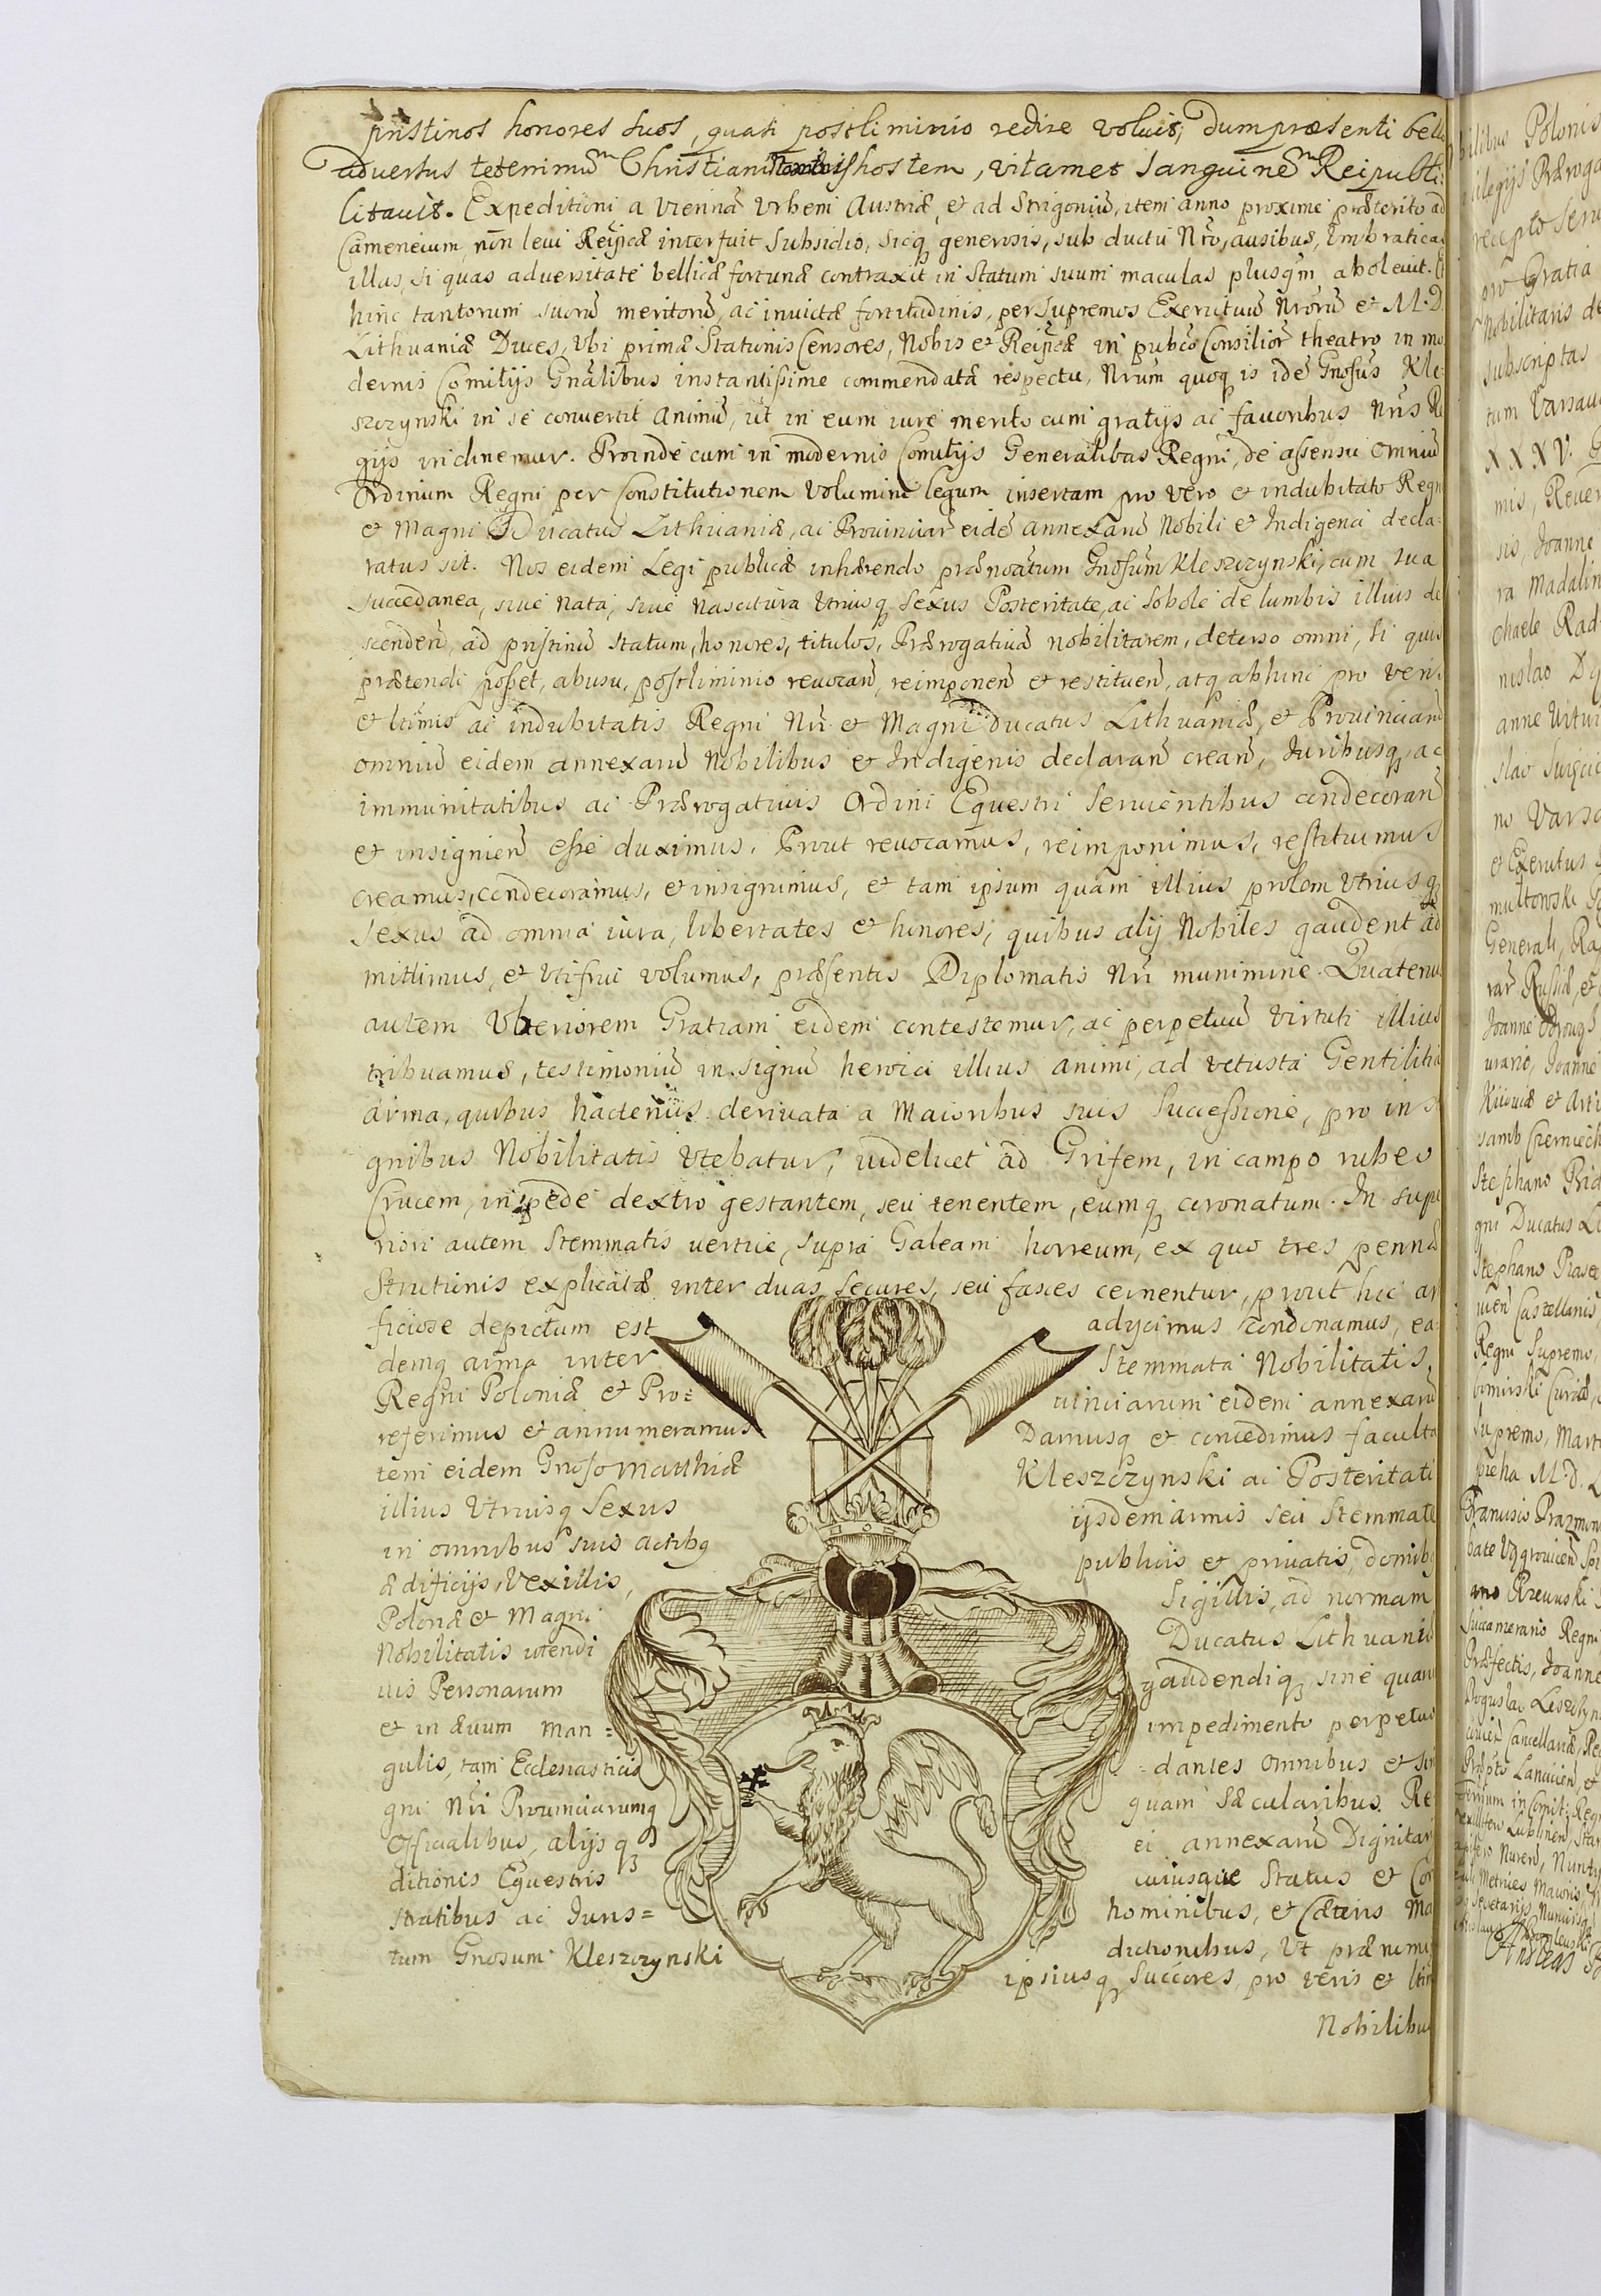 pristinos honores suos, quasi postliminio redire voluit, dum præsenti bello
adversus teterrimũ Christiani hostem, vitam et sanguinẽ Reipubl:
litavit. Expeditioni a Vienna Urbem Austriæ, et ad Strigoniũ, item anno proxime præterito ad
Cameneium, non levi Reipcæ interfuit subsidio, sicq generosis, sub ductu Nro, ausibus, Umbraticas
illas, si quas adversitate bellicæ fortunæ contraxit in Statum suum maculas plusqm abolevit. Et
hinc tantorum suorũ meritorũ, ac invictæ fortitudinis, per supremos Exercituũ Nrorũ et M. D.
Lithuaniæ Duces, Ubi primæ Stationis Censores, Nobis et Reipcæ in pubco Consiliorũ theatro in mo
dernis Comitijs Gnalibus instantissime commendatã respectu, Nrum quoq is idẽ Gnosus Kle-
szczynski in se convertit animũ, ut in eum iure merito cum gratijs ac favoribus Nris Re
gijs inclinemur. Proinde cum in modernis Comitijs Generalibus Regni, de assensu omniũ
Ordinum Regni per Constitutionem Volumini legum insertam pro vero et indubitato Regni
et Magni Ducatus Lithuaniæ, ac Provinciar eidẽ annexarũ Nobili et Indigena decla-
ratus sit. Nos eidem Legi publicæ inhærendo prænotatum Gnosum Kleszczynski, cum sua
succedanea, sive nata, sive nascitura utriusq sexus Posteritate, ac sobole de lumbis illius de
scenden̄, ad pristinũ statum, honores, titulos, Prærogativã nobilitarem, deterso omni, si quis
prætendi posset, abusu, postliminio revocan̄, reimponen̄ et restituen̄, atq abhinc pro veris
et ltimis ac indubitatis Regni Nri et Magni Ducatus Lithuaniæ, et Provinciarũ
omniũ eidem annexarũ Nobilibus et Indigenis declaran̄ crean̄, Iuribusq, ac
immunitatibus ac Prærogativis Ordini Equestri servientibus condecoran̄
et insignien̄ esse duximus. Prout revocamus, reimponimus, restituimus
creamus, condecoramus, et insignimus, et tam ipsum quam illius prolem utriusq
sexus ad omnia iura, libertates et honores, quibus alij Nobiles gaudent ad
mittimus, et utifrui volumus, præsentis Diplomatis Nri munimine. Quatenus
autem Uberiorem Gratiam eidem contestemur, ac perpetuũ virtuti illius
tribuamus, testimoniũ in signũ heroici illius animi, ad vetusta Gentilitia
arma, quibus hactenus derivata a Maioribus suis Successione, pro insi
gnibus Nobilitatis utebatur, videlicet ad Grifem, in campo rubeo
Crucem, in pede dextro gestantem, seu tenentem, eumq coronatum. In supe
riori autem Stemmatis vertice, supra Galeam horreum, ex quo tres pennæ
Strutionis explicatæ inter duas secures, seu fasces cernentur, prout hic ar
ficiose depictum est adijcimus condonamus, ea-
demq arma inter Stemmata Nobilitatis
Regni Poloniæ et Pro- vinciarum eidem annexarũ
referimus et annumeramus Damusq et concedimus faculta
tem eidem Gnoso Matthiæ Kleszczynski ac Posteritati
illius Utriusq Sexus ijsdem armis seu Stemmate
in omnibus suis actibq publicis et privatis, domibq
ædificijs, Vexillis, Sigillis, ad normam
Polonæ et Magni Ducatus Lithuaniæ
Nobilitatis utendi gaudendiq sine quar
vis Personarum impedimento perpetuo
et in ævum man= =dantes omnibus et sin
gulis, tam Ecclesiasticis quam Sæcularibus Re
gni Nri Provinciarumq ei annexarũ Dignitar
Officialibus, alijsq cuiusque Status et Con
ditionis Equestris hominibus, et Cæteris Ma
stratibus ac Iuris= dictionibus, Ut prænomi
tum Gnosum Kleszczynski ipsiusq Succores, pro veris et ltim
Nobilibus
bilibus Polonis
vilegijs Præroga
recepto serv
pro Gratia
Nobilitaris de
subscriptas
tum Varsav
XXXV. G
mis, Rever
sis, Joanne
ra Madalin
chaele Rad
nislao D
anne Vitvi
slao Swięcic
no Varso
et Exercitus
multowski
Generali, Ra
rar Russiæ, et
Joanne
urario, Joanne
Kiioviæ et Arti
samb Czerniech
Stephano Prid
gni Ducatus Li
Stephano Piase
vien Castellanis
Regni Supremo,
bomirski Curiæ,
Supremo, Mart
pieha M. D. L
Francisco Prazmow
bate Wągrovien Spi
Rzewuski
Succamerario Regni
Præfectis, Joanne
Boguslao Leszczyn
Cancellariæ, Re
Præpto Lancicien, et
in Comit: Regn
Lublinen, Star
Nuren, Nunty
Metrices Maioris,
Secretarijs
Andreas